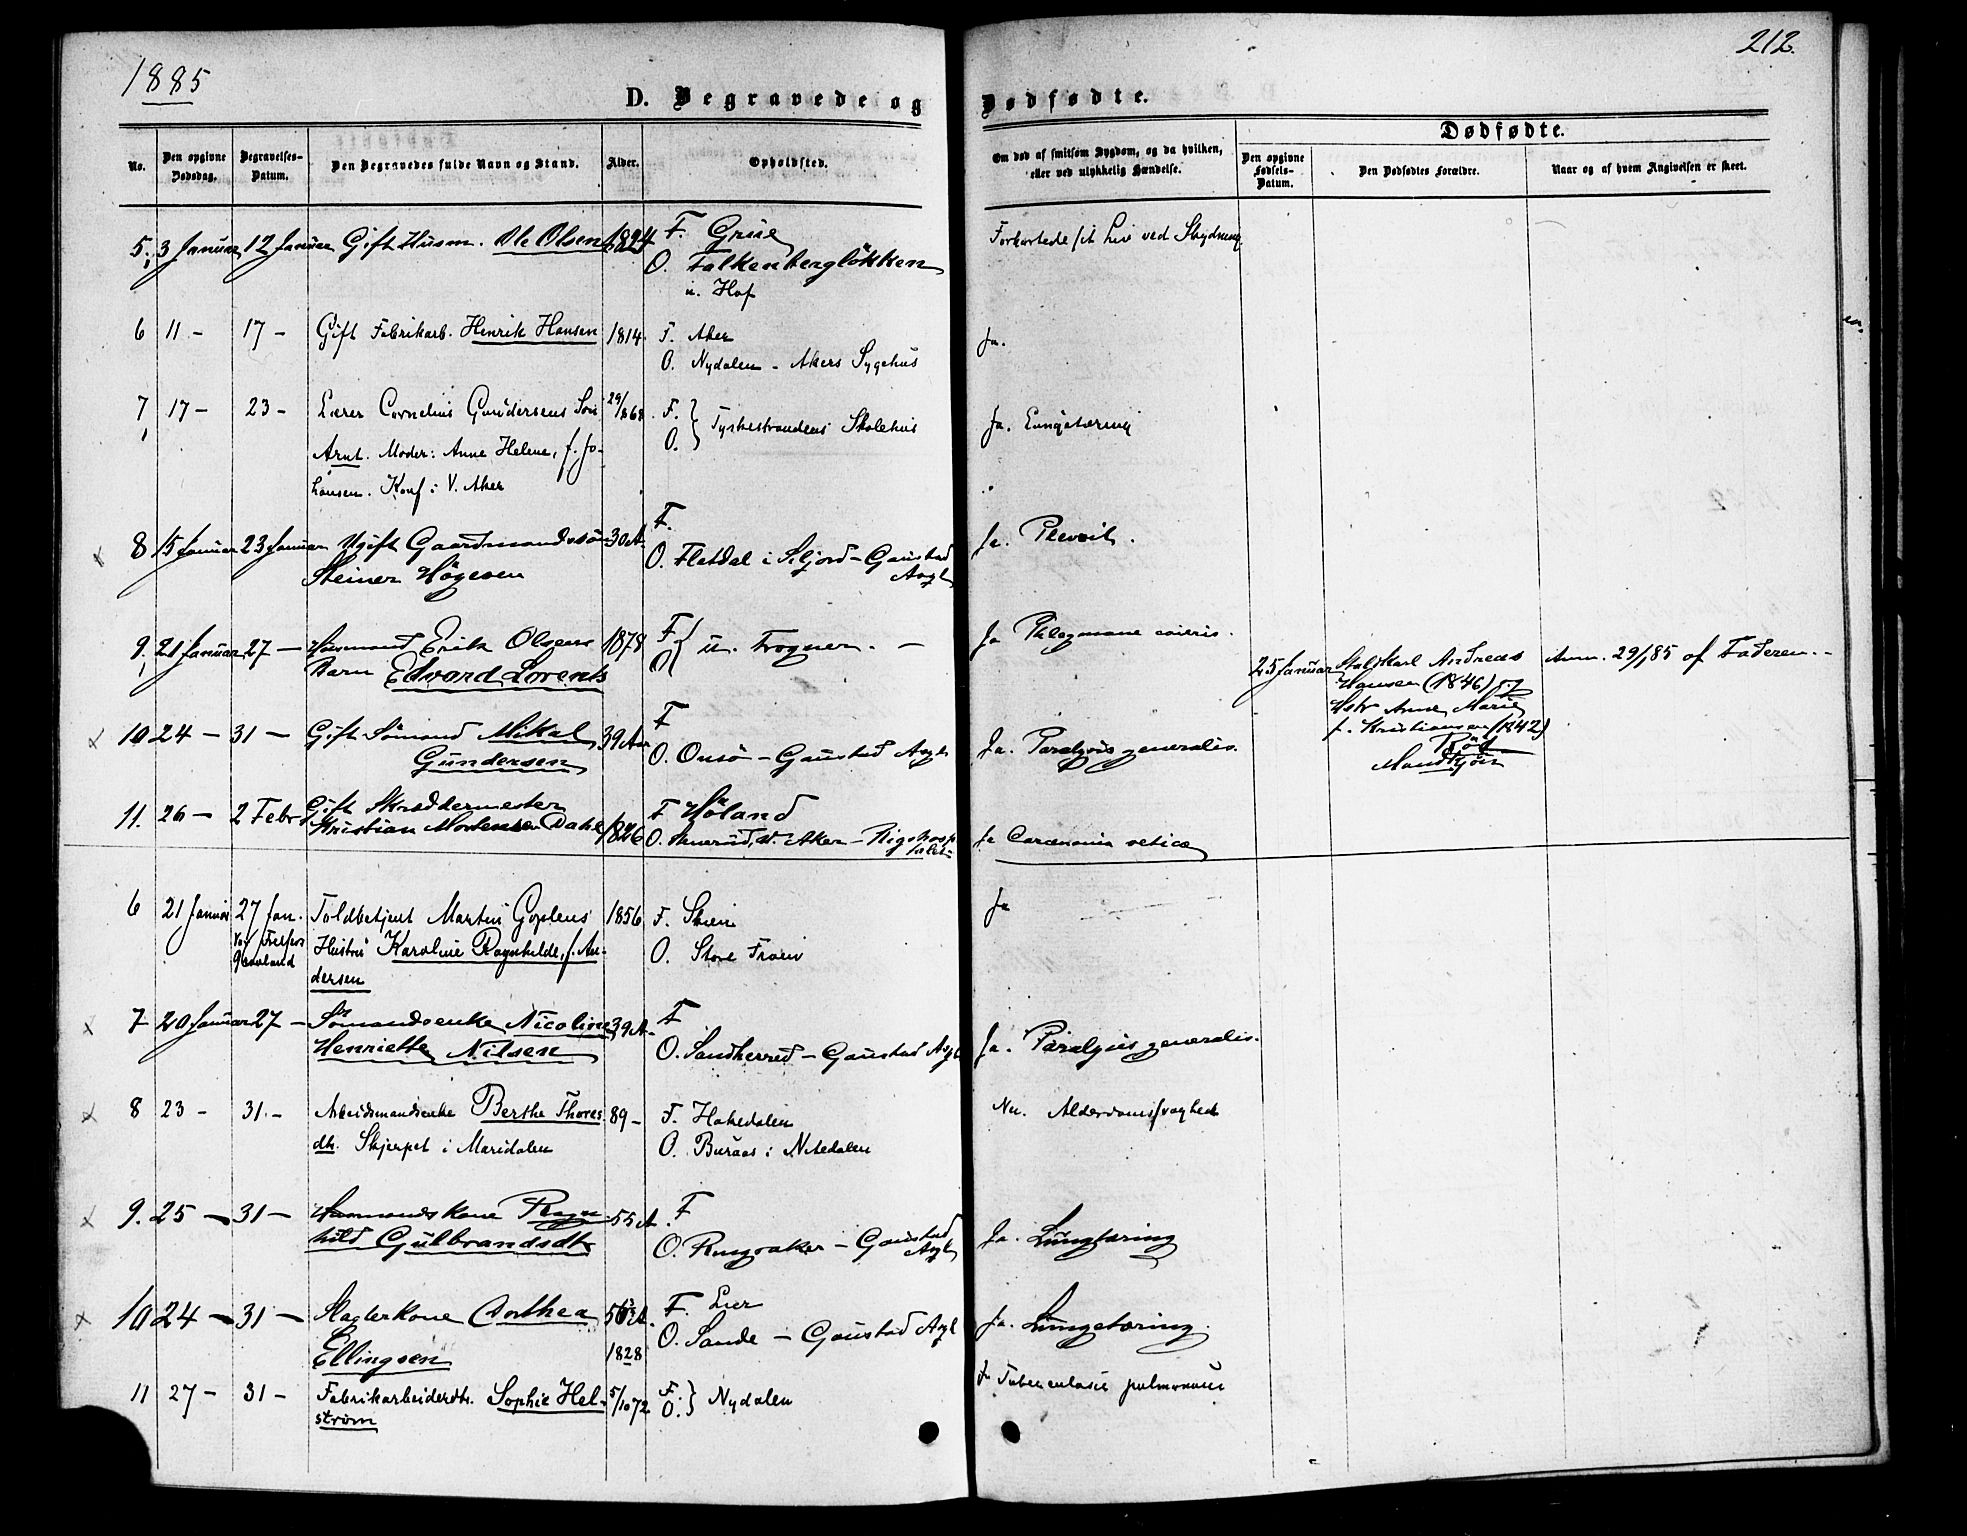 1885
212.
D. Begravede og Dødfødte.
No.
Den opgivne Dødsdag.
Begravelses-Datum.
Den Begravedes fulde Navn og Stand.
Alder.
Opholdsted.
Om død af smitsom Sygdom, og da hvilken, eller ved ulykkelig Hændelse.
Dødfødte.
Den opgivne Fødsels-Datum.
Den Dødfødtes Forældre.
Naar og af hvem Angivelsen er skeet.
5. 3 Januar 12 Januar Gift Husm. Ole Olsen 1824 F. Grue Forkortede sit Liv ved Skydning
O. Falkenbergløkken
u. Hof
6 11 - 17 - Gift Fabrikarb. Henrik Hansen 1814 F. Aker Ja.
O. Nydalen - Akers Sygehus
7 17 - 23 - Lærer Cornelius Gundersens Søn 29/ 868 F. O. } Skolehus Ja. Lungetæring
Arnt. Moder: Anne Helene, f. Jo-
hansen. Konf i V. Aker
8 15 Januar 23 Januar Ugift Gaardmandssøn 30 A. F. Ja.
Steiner Høgesen O. Flatdal i Seljord - Gaustad Asyl
9. 21 Januar 27 - Erik Olsens 1878 F O { u. Frogner. - Ja
Barn Edvard Lorents
25 Januar Staldkarl Andreas Anm. 29/1 85 af Faderen. -
Hansen (1846) og
Hstr Anne Marie
f. Kristiansen (1842)
Mandkjøn
10 24 - 31 - Gift Sømand Mikal 39 Aar F Ja. Paralysis generalis.
Gundersen O. Onsø - Gaustad Asyl
11. 26 - 2 Febr Gift Skræddermester F Høland
Kristian Mortensen Dahl 1826 O. V. Aker - Rigshospitalet Ja
6 21 Januar 27 Jan. Toldbetjent Martin Goplens 1856 F. Skien Ja
Vor Frelsers Gravlund Hustru Karoline Ragnhilde, f. An- O. Store Frøen
dersen
7 20 Januar 27 - Sømandsenke Nicoline 39 A. F
Henriette Nilsen O. Sandherred - Gaustad Asyl Ja. Paralysis generalis.
8 23 - 31. - Arbeidsmandsenke Berthe Thores 89 - F. Hakedalen Nei. Alderdomssvaghed
dtr. Skjerpet i Maridalen O. Buraas i Nitedalen
9. 25 - 31 - Ragn 55 A. F
hild Gulbrandsdtr O. Ringsaker - Gaustad Asyl Ja. Lungtæring
10 24 - 31 - Slagterkone Dorthea 56 A. F. Lier Ja. Lungetæring.
Ellingsen 1828 O. Sande - Gaustad Asyl
11 27 - 31 - Fabrikarbeiderdtr. Sophie Hel- 5/10 72 F. O. } Nydalen Ja Tuberculosis pulmonum
strøm